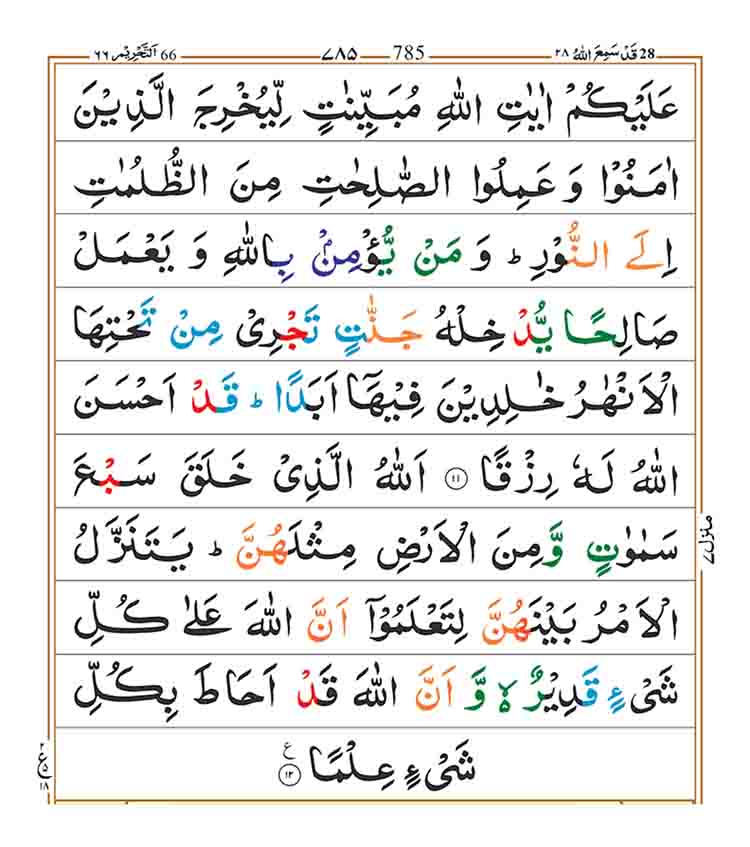 28 قَدْ سَمِعَ اللّٰهُ ٢٨ 785 ٧٨٥ 66 اَلتَّحْرِيْم ٦٦
عَلَيْكُمْ اٰيٰتِ اللّٰهِ مُبَيِّنٰتٍ لِّيُخْرِجَ الَّذِيْنَ
اٰمَنُوْا وَ عَمِلُوا الصّٰلِحٰتِ مِنَ الظُّلُمٰتِ
اِلَى النُّوْرِ ؕ وَ مَنْ يُّؤْمِنْۢ بِاللّٰهِ وَ يَعْمَلْ
صَالِحًا يُّدْ خِلْهُ جَنّٰتٍ تَجْرِىْ مِنْ تَحْتِهَا
الْاَنْهٰرُ خٰلِدِيْنَ فِيْهَاۤ اَبَدًا ؕ قَدْ اَحْسَنَ
اللّٰهُ لَهٗ رِزْقًا ۝۱۱ اَللّٰهُ الَّذِىْ خَلَقَ سَبْعَ
سَمٰوٰتٍ وَّ مِنَ الْاَرْضِ مِثْلَهُنَّ ؕ يَتَنَزَّلُ
الْاَمْرُ بَيْنَهُنَّ لِتَعْلَمُوْۤا اَنَّ اللّٰهَ عَلٰى كُلِّ
شَىْءٍ قَدِيْرٌ ۙ وَّ اَنَّ اللّٰهَ قَدْ اَحَاطَ بِكُلِّ
شَىْءٍ عِلْمًا ۝۱۲ ع
منزل ٧
٢
ع
٥
١٨